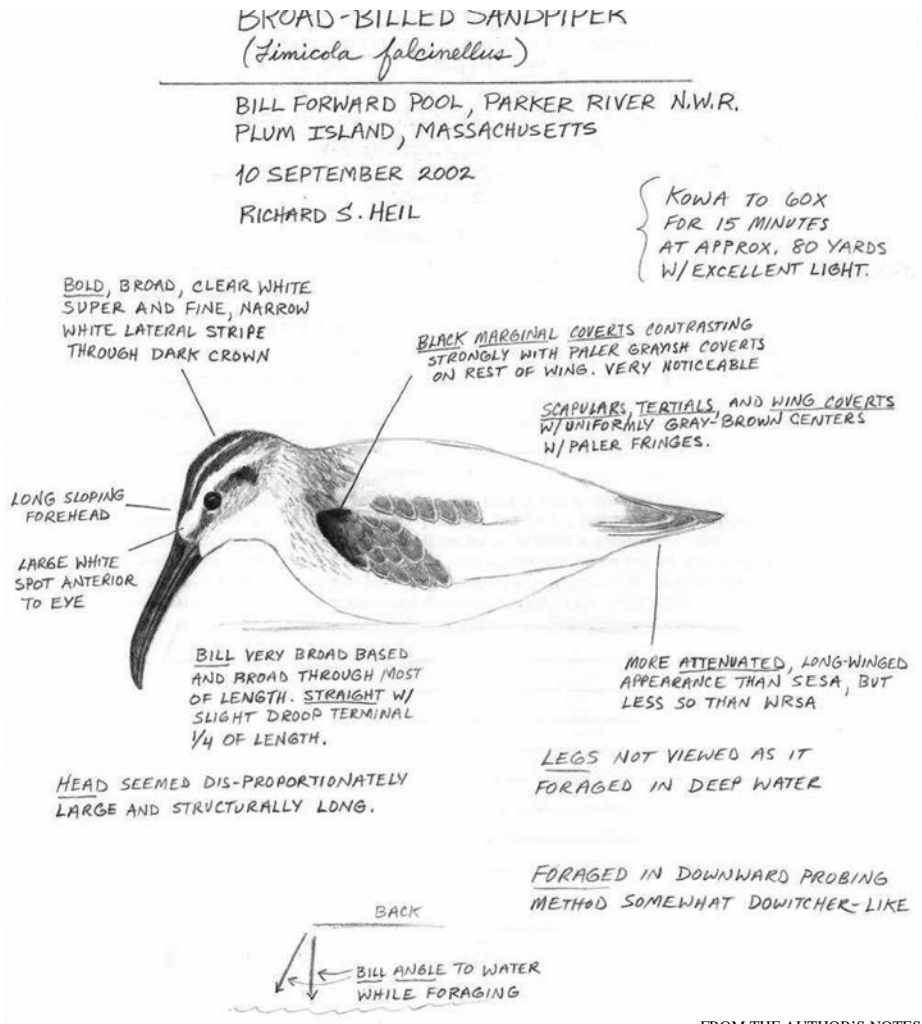 BROAD-BILLED SANDPIPER
(Limicola falcinellus)
BILL FORWARD POOL, PARKER RIVER N.W.R.
PLUM ISLAND, MASSACHUSETTS
10 SEPTEMBER 2002
RICHARD S. HEIL
KOWA TO 60X
FOR 15 MINUTES
AT APPROX. 80 YARDS
W/ EXCELLENT LIGHT.
BOLD, BROAD, CLEAR WHITE
SUPER AND FINE, NARROW
WHITE LATERAL STRIPE
THROUGH DARK CROWN
BLACK MARGINAL COVERTS CONTRASTING
STRONGLY WITH PALER GRAYISH COVERTS
ON REST OF WING. VERY NOTICEABLE
SCAPULARS, TERTIALS, AND WING COVERTS
W/ UNIFORMLY GRAY-BROWN CENTERS
W/ PALER FRINGES.
LONG SLOPING
FOREHEAD
LARGE WHITE
SPOT ANTERIOR
TO EYE
BILL VERY BROAD BASED
AND BROAD THROUGH MOST
OF LENGTH. STRAIGHT W/
SLIGHT DROOP TERMINAL
1/4 OF LENGTH.
MORE ATTENUATED, LONG-WINGED
APPEARANCE THAN SESA, BUT
LESS SO THAN WRSA
HEAD SEEMED DIS-PROPORTIONATELY
LARGE AND STRUCTURALLY LONG.
LEGS NOT VIEWED AS IT
FORAGED IN DEEP WATER
FORAGED IN DOWNWARD PROBING
METHOD SOMEWHAT DOWITCHER-LIKE
BACK
BILL ANGLE TO WATER
WHILE FORAGING
FROM THE AUTHOR'S NOTES